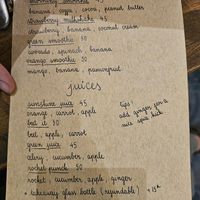 morning smoothie 45
banana, cocoa, peanut butter
strawberry milkshake 45
strawberry, banana, coconut cream
green smoothie 50
avocado, spinach, banana
orange smoothie 50
mango, banana, passionfruit
JUICES
sunshine juice 45
orange, carrot, apple
beet it 50
beet, apple, carrot
green juice 45
celery, cucumber, apple
rocket punch 50
rocket, cucumber, apple, ginger
+ takeaway glass bottle (refundable) +15
tips:
add ginger for a
nice spicy kick